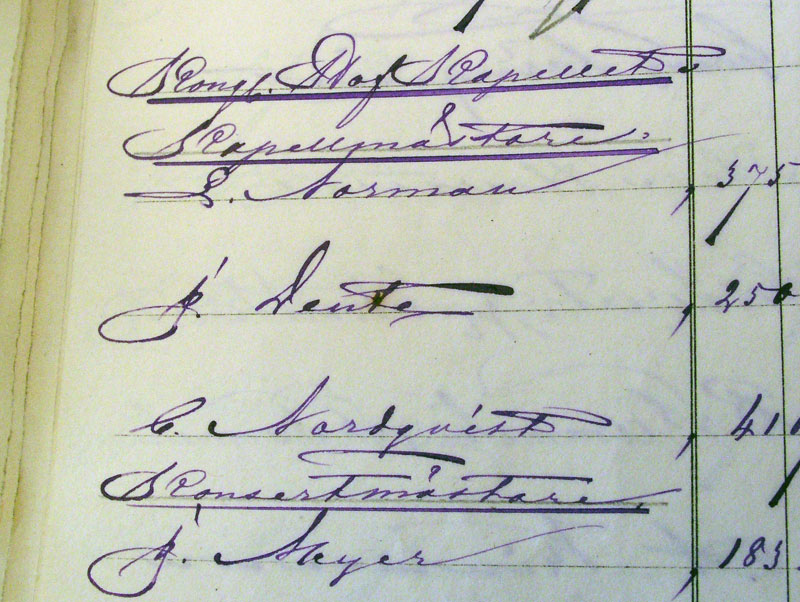 Kongl. Hof Kapellet.
Kapellmästare.
L. Norman , 375
J. Dente , 250
C. Nordqvist , 411
Konsertmästare.
J. Meyer , 183